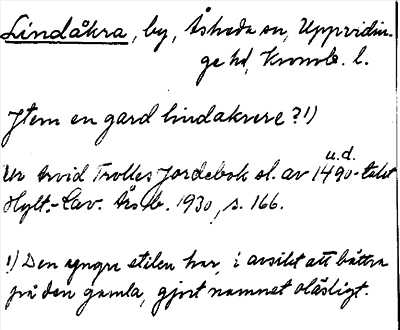 Lindåkra, by, Åsheda sn, Uppvidin-
ge hd, Kronob. l.
Jtem en gard lindakrere ?¹)
u.d.
Ur Arvid Trolles Jordebok sl. av 1490-talet
Hylt.-Cav. Årsb. 1930, s. 166.
1) Den yngre stilen har, i avsikt att bättra
på den gamla, gjort namnet oläsligt.